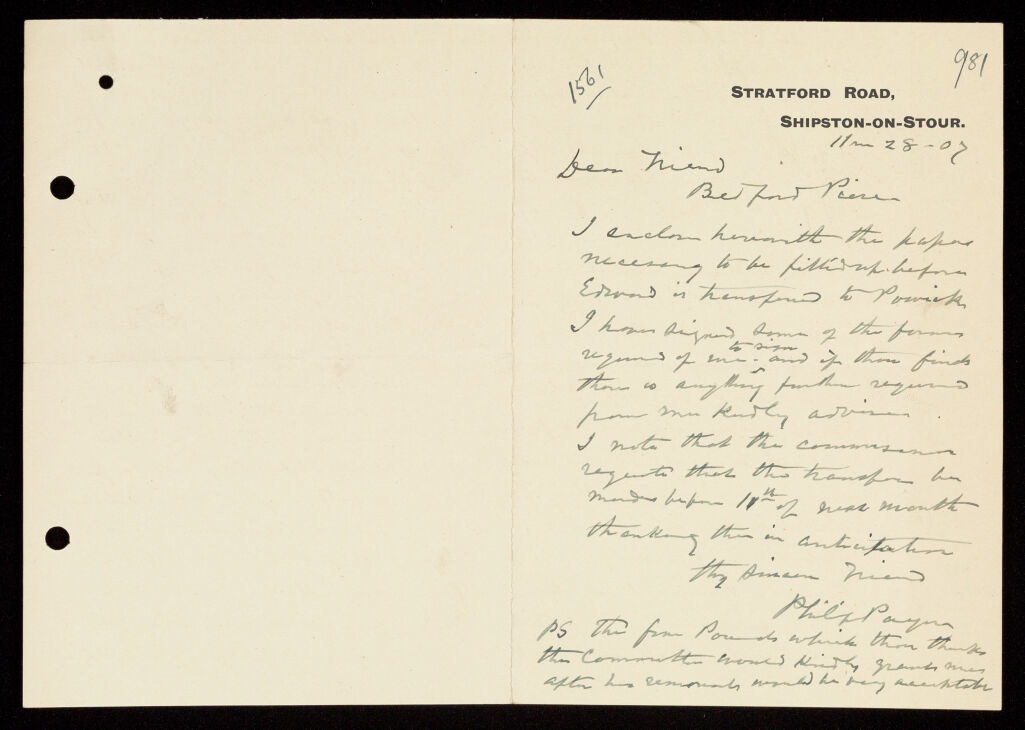 981
1561
STRATFORD ROAD,
SHIPSTON-ON-STOUR.
11m 28-07
Dear Friend
Bedford Pierce
I enclose herewith the papers
necessary to be filled up before
Edward is transferred to Powick
I have signed some of the forms
required of me to sign and if thou finds
there is anything further required
from me kindly advise
I note that the commissioners
request that the transfer be
made before 11th of next month
thanking thee in anticipation
thy sincere Friend
Philip Payne
PS the Pounds which thou thinks
the Committee would kindly grant me
after his removal would be very acceptable